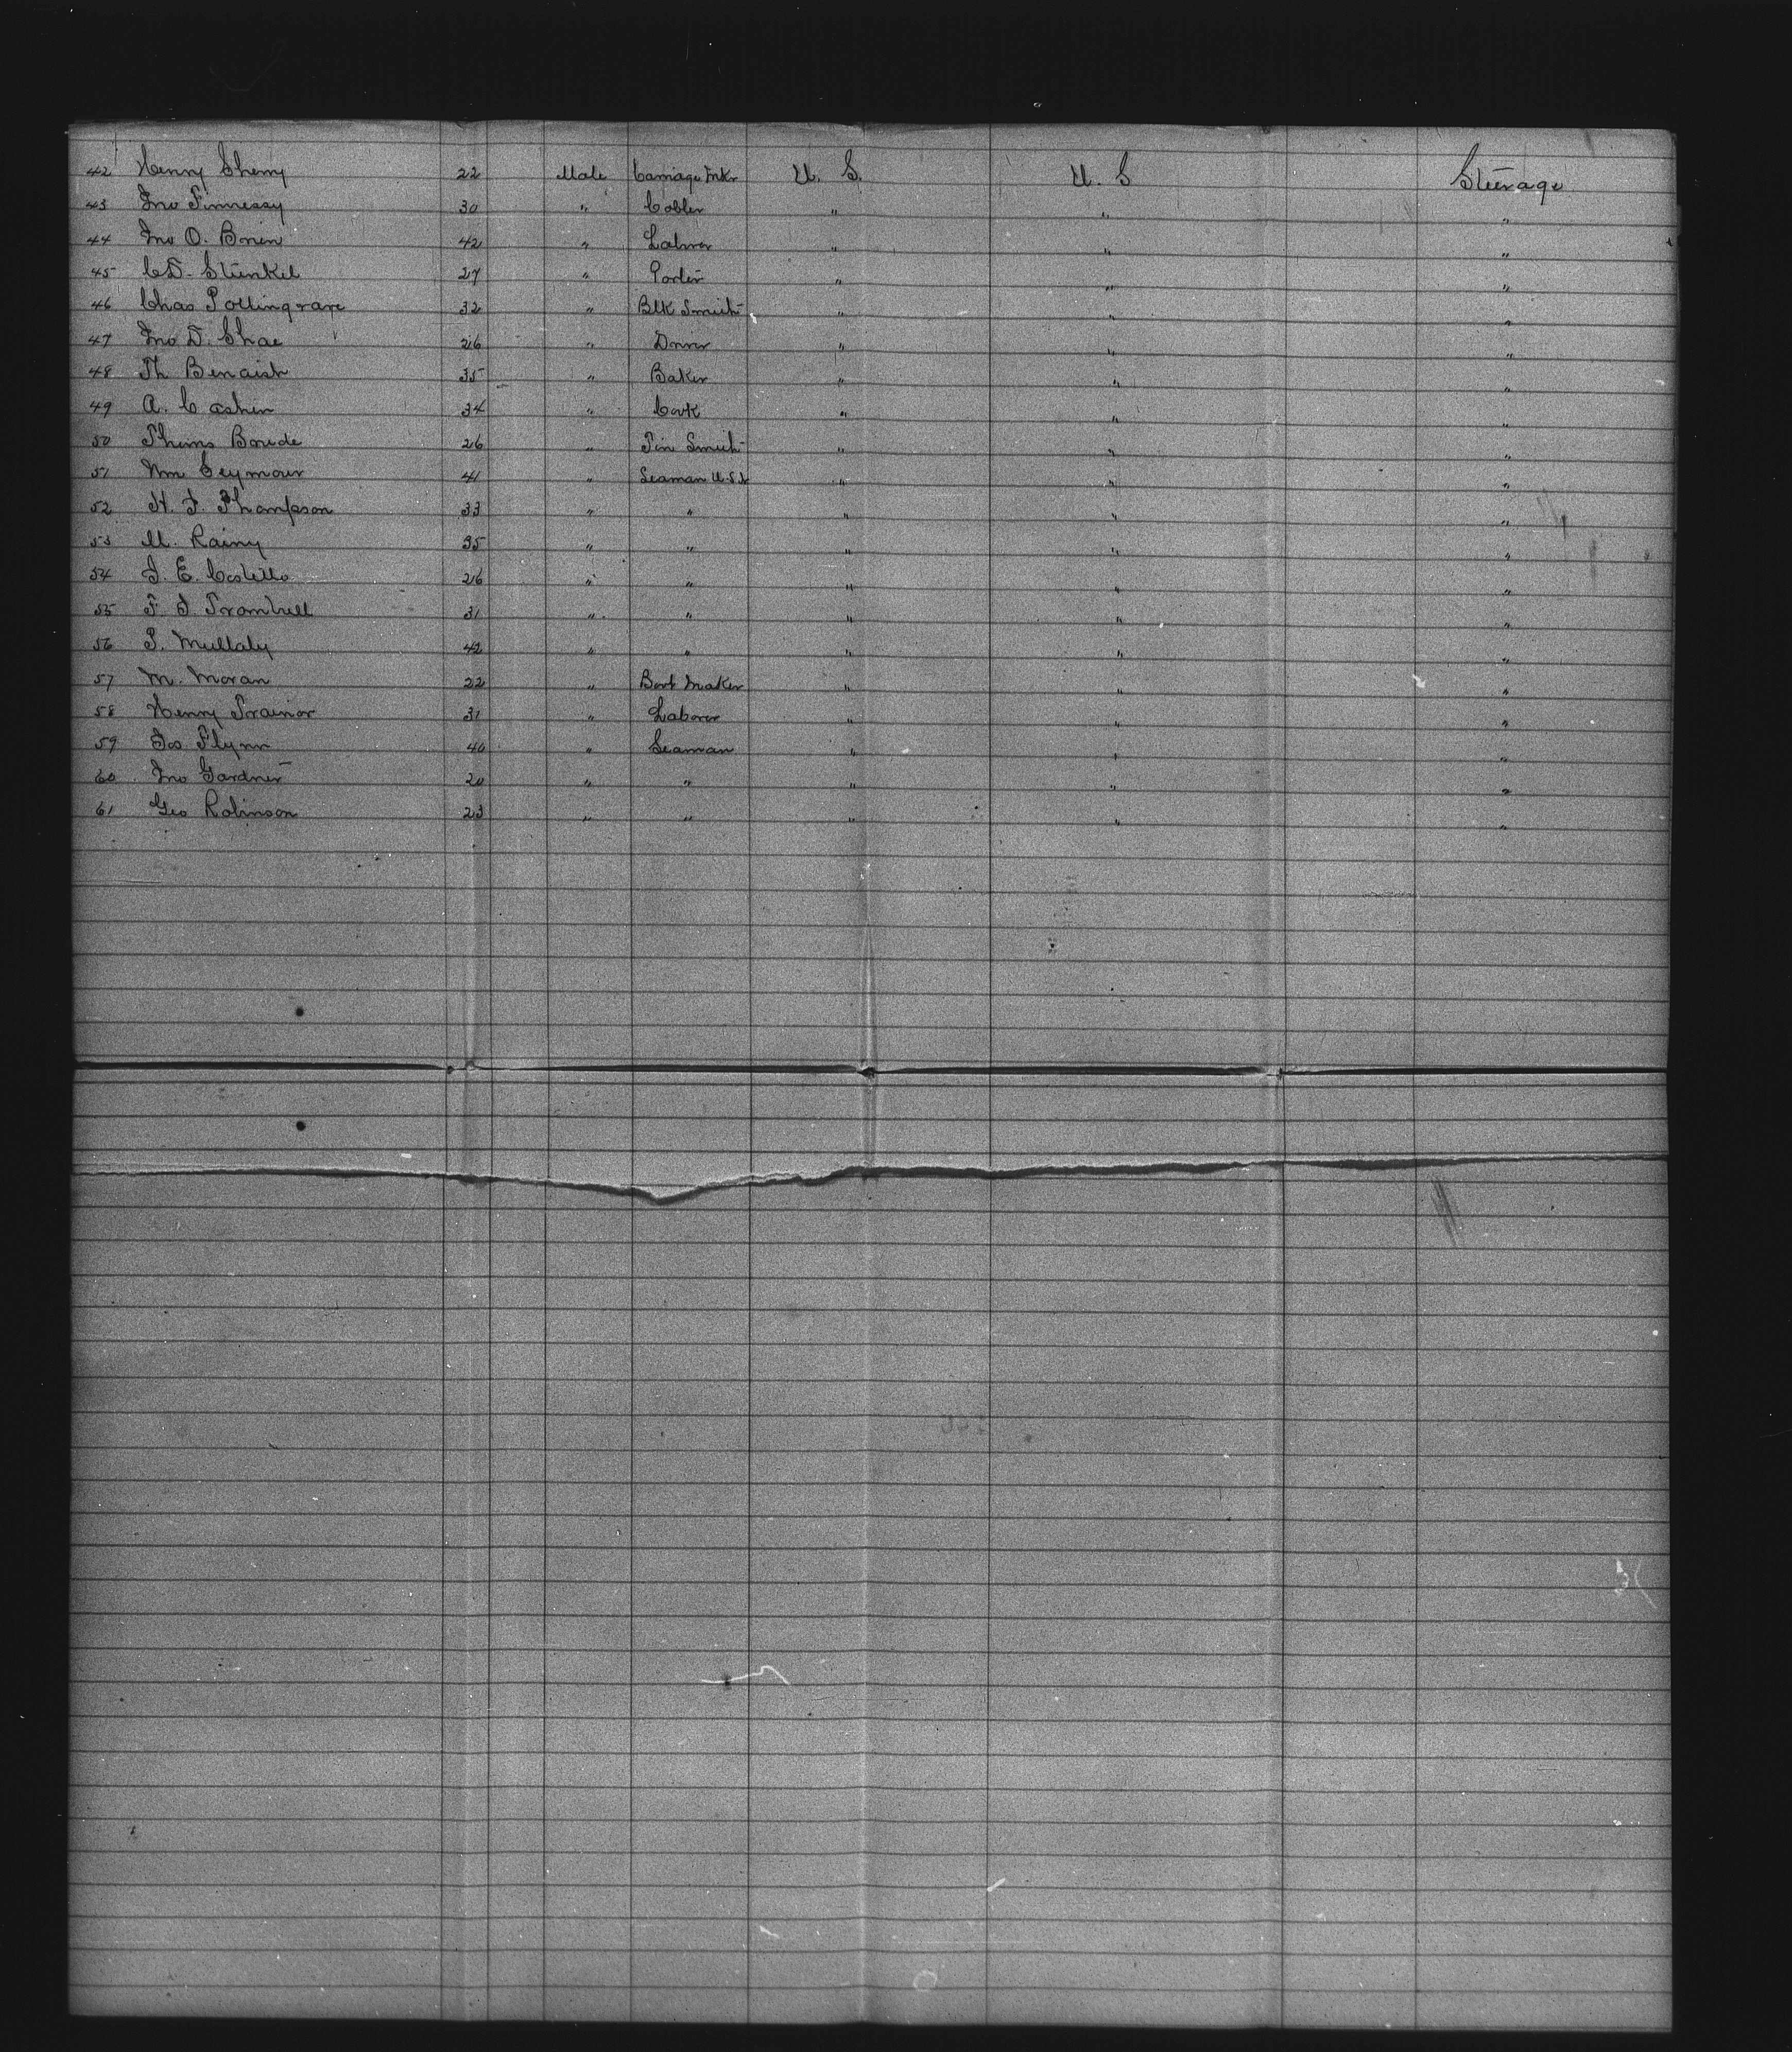 42 Henry Sherry 22 Male Carriage Mkr U. S. U. S Steerage
43 Jno Finnessy 30 " Cobler " " "
44 Jno O. Brien 42 " Laborer " " "
45 C.D. Stunkel 27 " Porter " " "
46 Chas 32 " Blk Smith " " "
47 Jno D. Shae 26 " Driver " " "
48 Th Benaish 35 " Baker " " "
49 A. Cashin 34 " Cook " " "
50 Thums Boude 26 " Tin Smith " " "
51 Wm Seymour 41 " Seaman U.S.N " " "
52 H. F. Thompson 33 " " " " "
53 M. Rainy 35 " " " " "
54 J. E. Costello 26 " " " " "
55 F. J. Trombull 31 " " " " "
56 P. Mullaly 42 " " " " "
57 M. Moran 22 " Boot Maker " " "
58 Henry Trainor 31 " Laborer " " "
59 Jos Flynn 40 " Seaman " " "
60 Jno Gardner 20 " " " " "
61 Geo Robinson 23 " " " " "